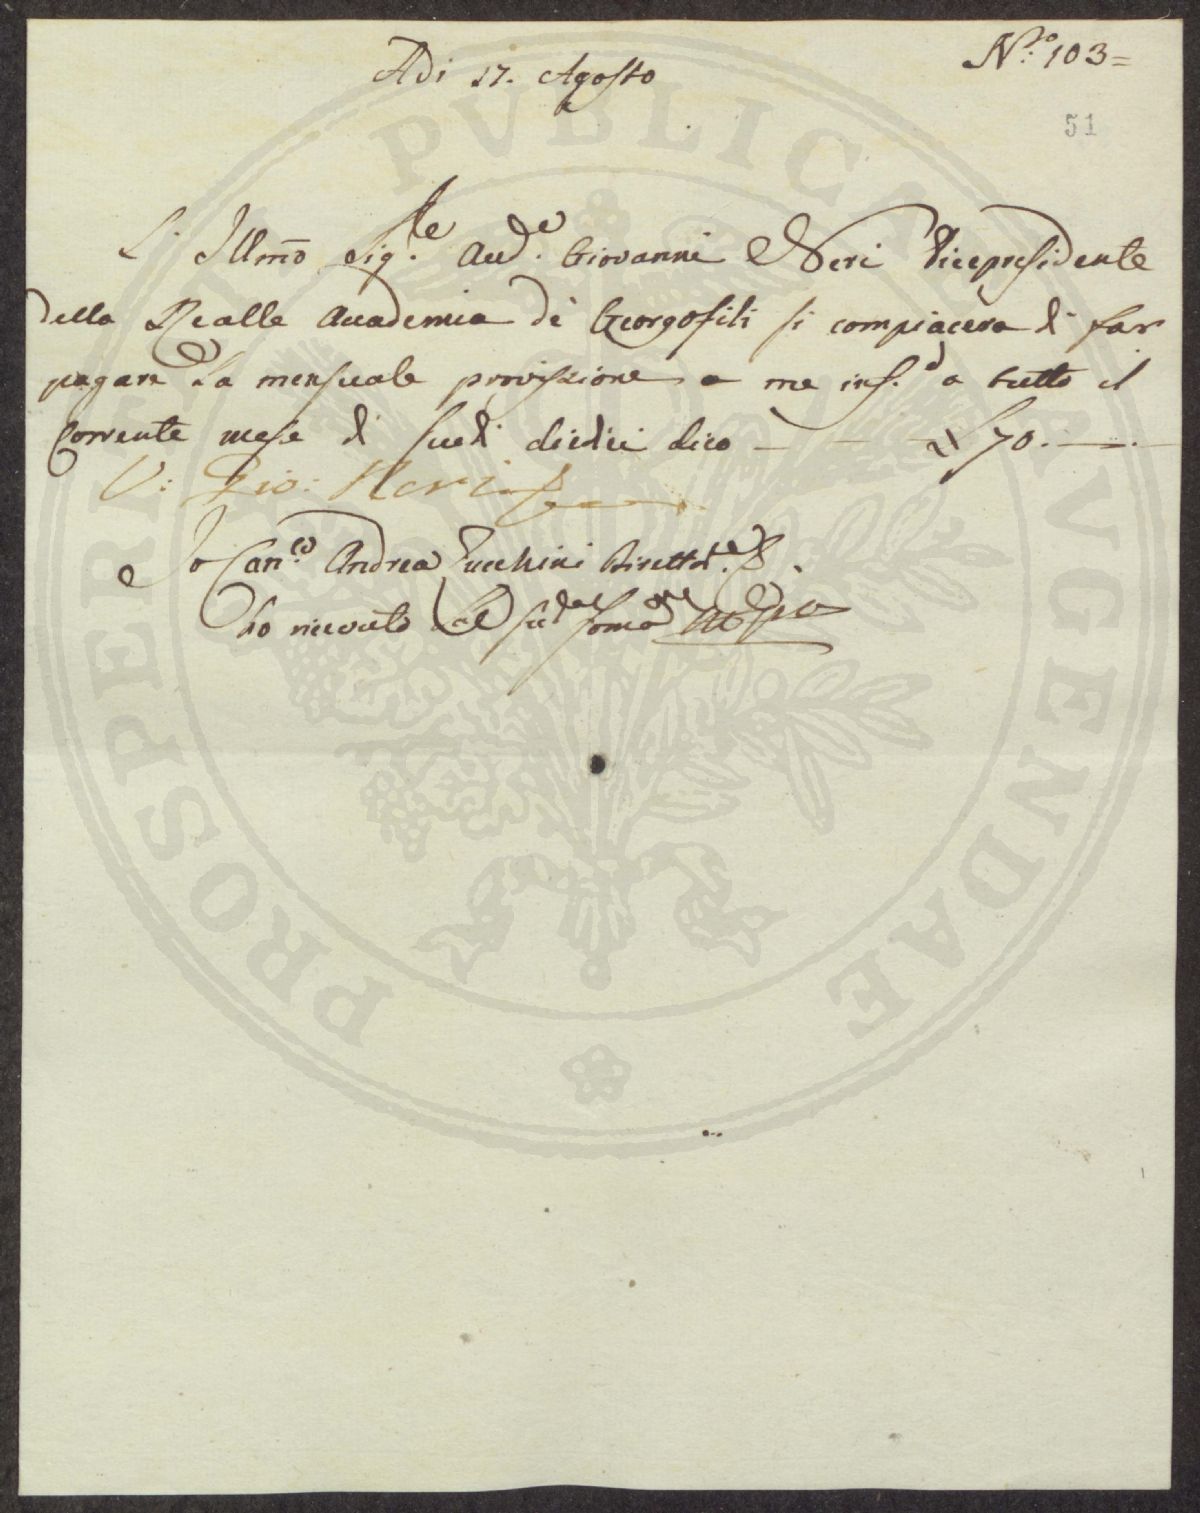 Adi 17. Agosto
N.ro 103=
51
L'Illmo Sig.re Aud.e Giovanni Neri Vicepresidente
della Realle Accademia dè Georgofili si compiacera di far
pagare la mensuale provisione a me inf.o a tutto il
Corrente mese di Scudi dieci dico — £ 70.—.—
V: Gio: Neri
Io Can.co Andrea Zucchini Dirett.e
ho ricevuto la sud. somma
PROSPERITATI PUBLICAE AUGENDAE